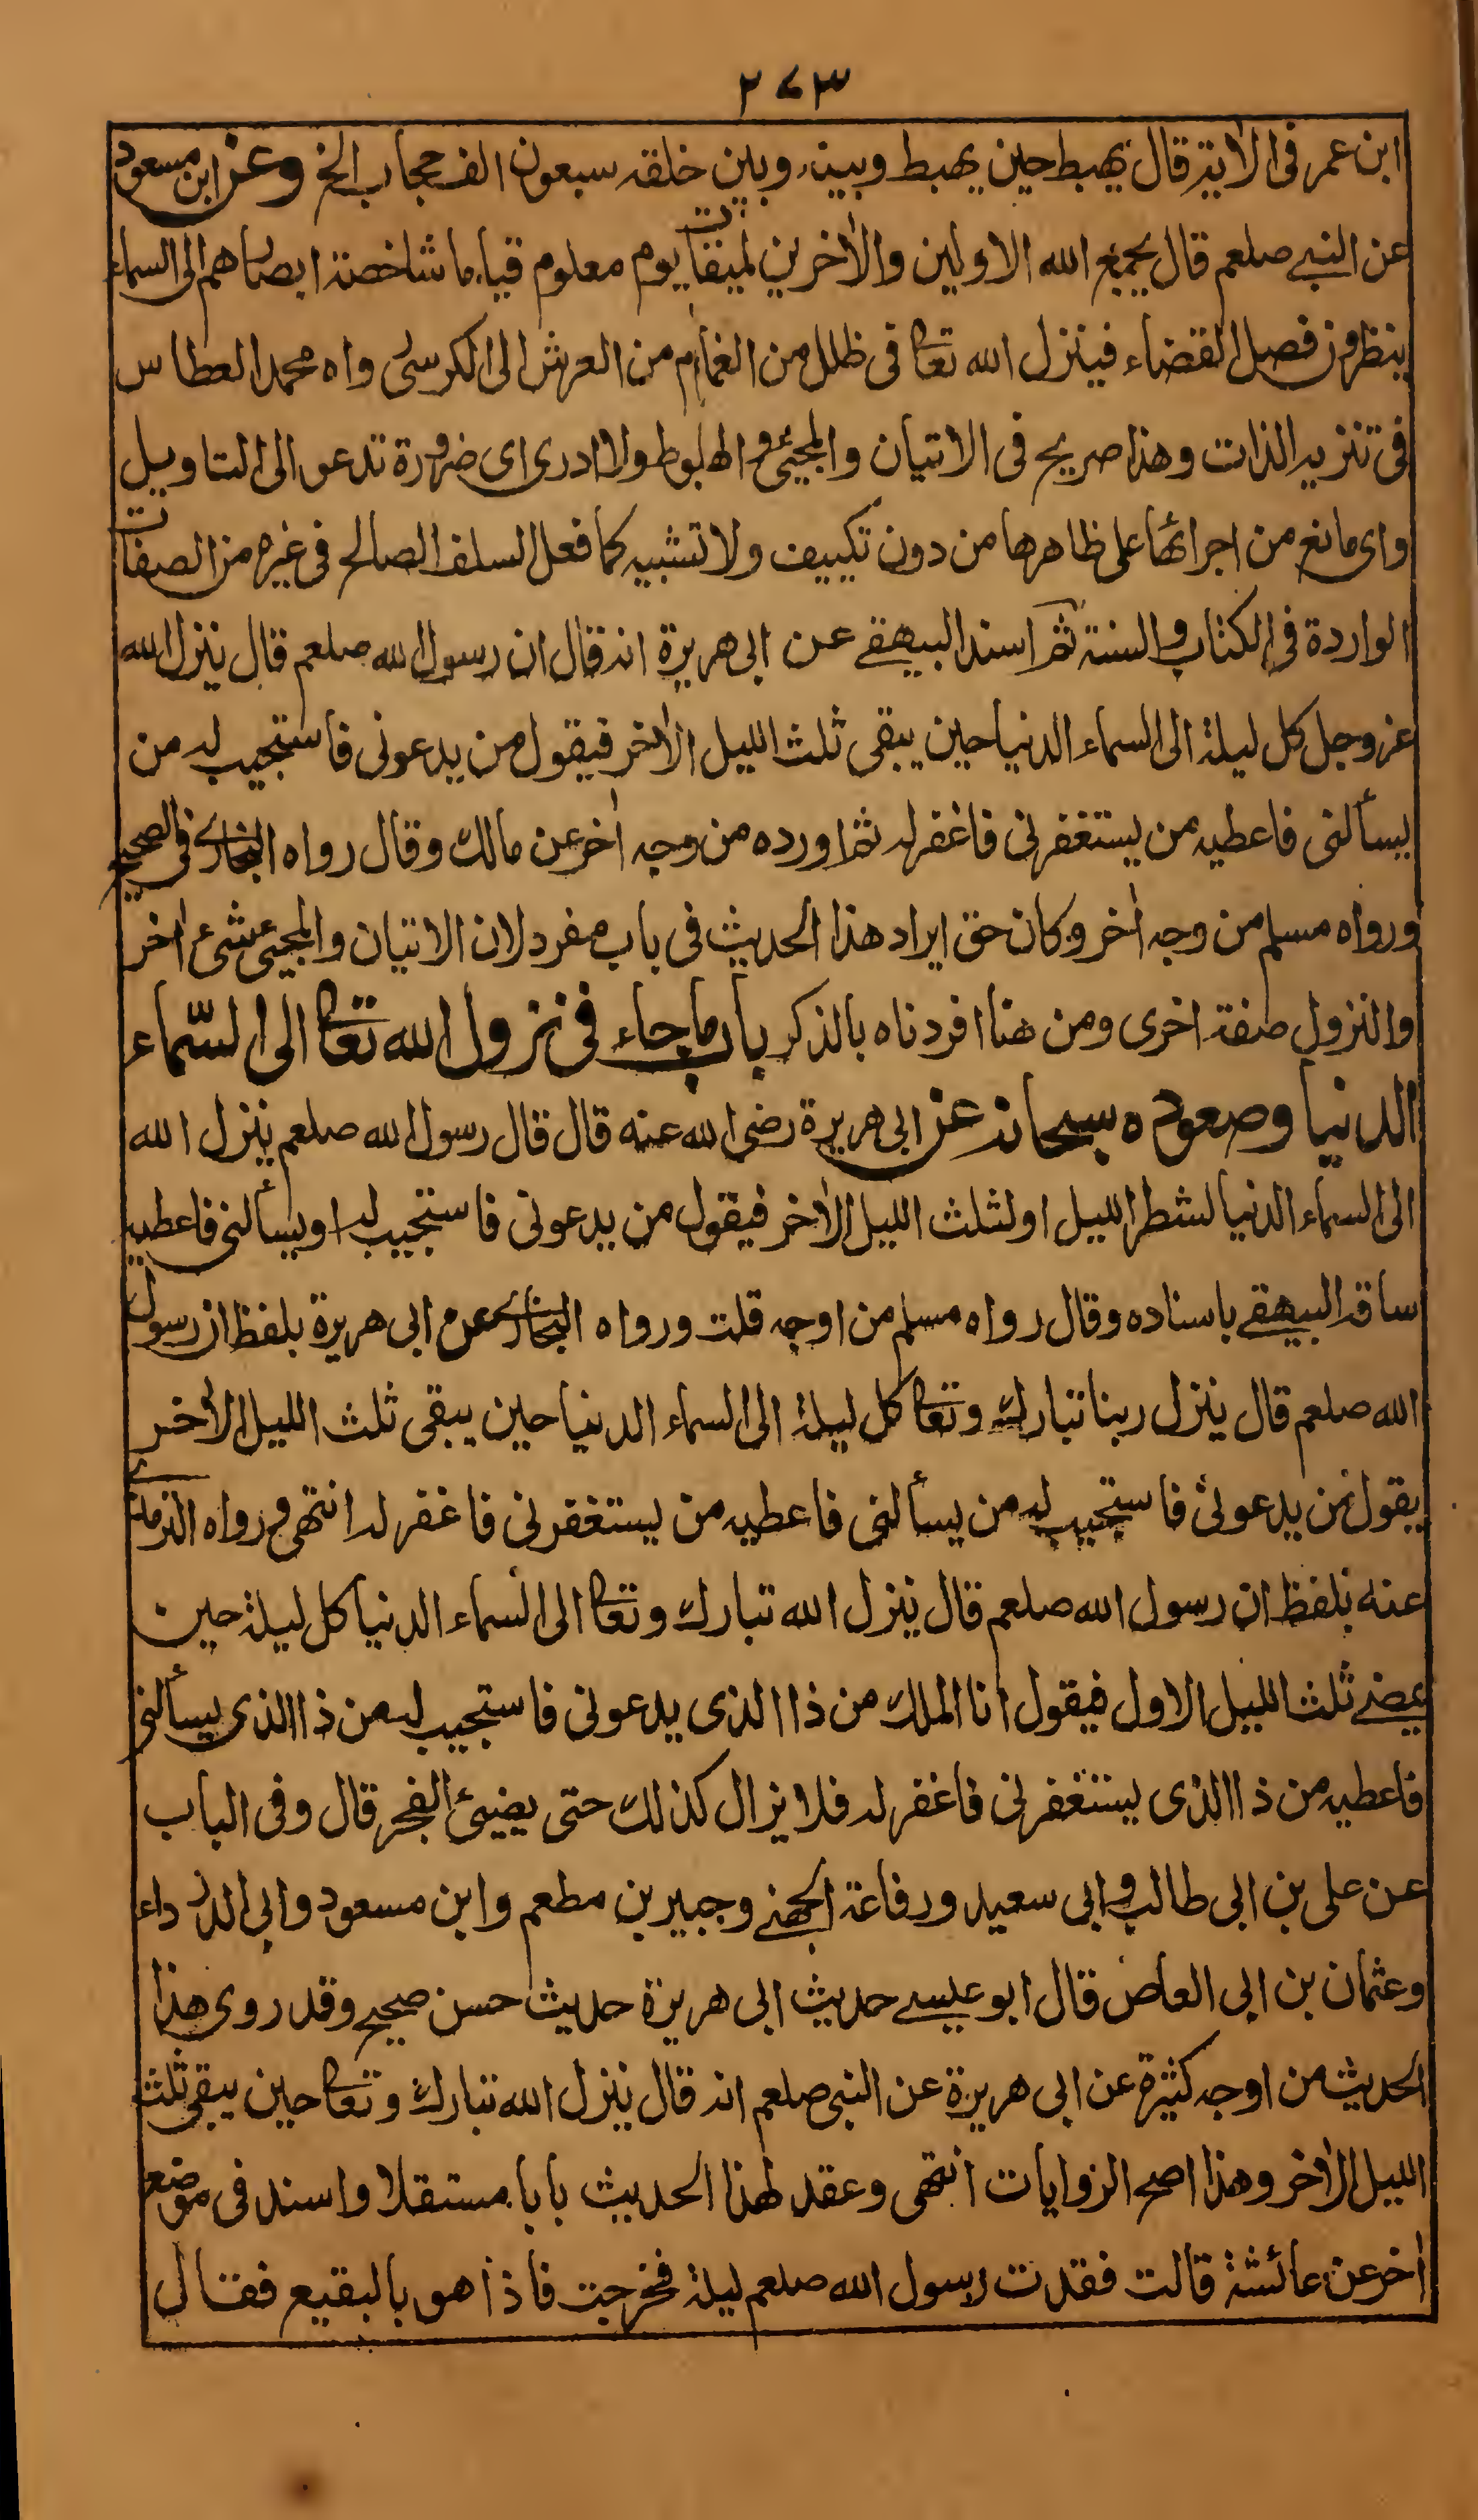 ٢٧٣
ابن عمر فى الاٰية قال يهبط حين يهبط وبينه وبين خلقه سبعون الف حجاب الخ وعن ابن مسعود
عن النبى صلعم قال يجمع الله الاولين والاٰخرين لميقات يوم معلوم قياما شاخصة ابصارهم الى السماء
ينظرون فصل القضاء فينزل الله تعا فى ظلل من الغمام من العرش الى الكرسى رواه محمد العطار
فى تنزيه الذات وهذا صريح فى الاتيان والمجيئ والهبوط ولا ادرى اى ضرورة تدعو الى التاويل
واى مانع من اجرائها على ظاهرها من دون تكييف ولا تشبيه كما فعل السلف الصالح فى غيره من الصفات
الواردة فى الكتاب والسنة ثم اسند البيهقے عن ابى هريرة انه قال ان رسول الله صلعم قال ينزل الله
عز وجل كل ليلة الى السماء الدنيا حين يبقى ثلث الليل الاٰخر فيقول من يدعونى فاستجيب له من
يسألنى فاعطيه من يستغفرنى فاغفر له ثم اورده من وجه اٰخر عن مالك وقال رواه البخارى فى الصحيح
ورواه مسلم من وجه اٰخر وكان حق ايراد هذا الحديث فى باب مفرد لان الاتيان والمجيئ شىء اٰخر
والنزول صفة اخرى ومن هنا افردناه بالذكر باب ما جاء فى نزول الله تعا الى السّماء
الدنيا وصعوده سبحانه عن ابى هريرة رضى الله عنه قال قال رسول الله صلعم ينزل الله
الى السماء الدنيا لشطر الليل او لثلث الليل الاٰخر فيقول من يدعونى فاستجيب له او يسألنى فاعطيه
ساقه البيهقے باسناده وقال رواه مسلم من اوجه قلت ورواه البخارى عن ابى هريرة بلفظ ان رسول
الله صلعم قال ينزل ربنا تبارك وتعا كل ليلة الى السماء الدنيا حين يبقى ثلث الليل الاٰخر
يقول من يدعونى فاستجيب له من يسألنى فاعطيه من يستغفرنى فاغفر له انتهى ورواه الترمذى
عنه بلفظ ان رسول الله صلعم قال ينزل الله تبارك وتعا الى السماء الدنيا كل ليلة حين
يمضے ثلث الليل الاول فيقول انا الملك من ذا الذى يدعونى فاستجيب له من ذا الذى يسألنى
فاعطيه من ذا الذى يستغفرنى فاغفر له فلا يزال كذلك حتى يضيئ الفجر قال وفى الباب
عن على بن ابى طالب وابى سعيد ورفاعة الجهنے وجبير بن مطعم وابن مسعود وابى الدرداء
وعثمان بن ابى العاص قال ابو عيسے حديث ابى هريرة حديث حسن صحيح وقد روى هذا
الحديث من اوجه كثيرة عن ابى هريرة عن النبى صلعم انه قال ينزل الله تبارك وتعا حين يبقى ثلث
الليل الاٰخر وهذا اصح الروايات انتهى وعقد لهذا الحديث بابا مستقلا واسند فى موضع
اٰخر عن عائشة قالت فقدت رسول الله صلعم ليلة فخرجت فاذا هو بالبقيع فقال